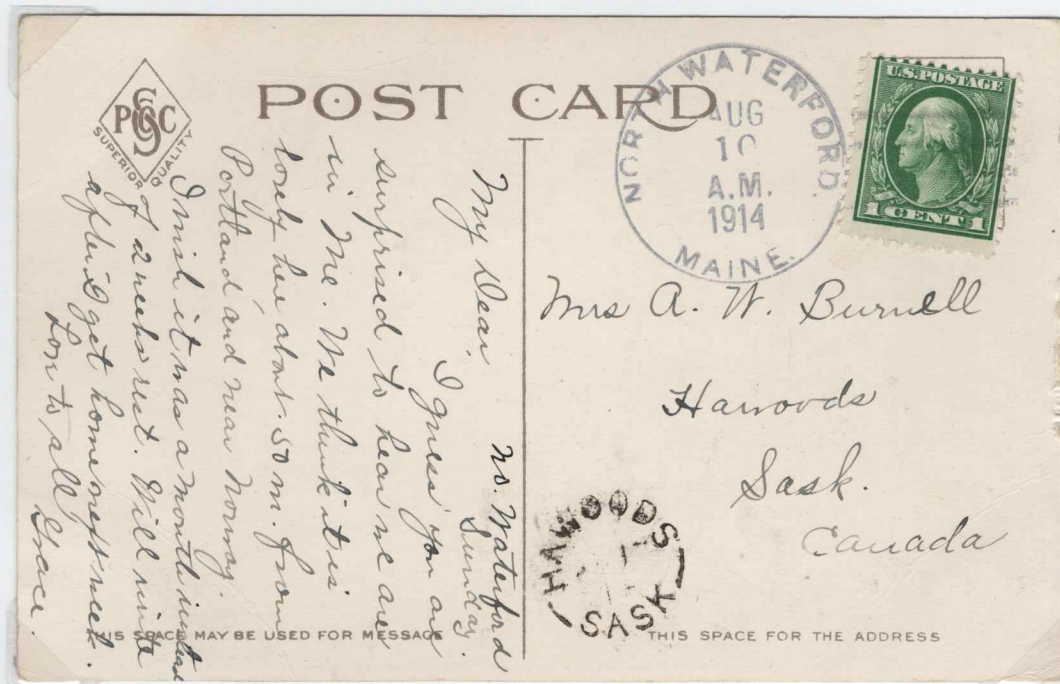 PSC&C
SUPERIOR QUALITY
POST CARD
NORTH WATERFORD.
AUG
10
A.M.
1914
MAINE.
U.S. POSTAGE
1 CENT 1
No. Waterford
Sunday.
My Dear,
I guess you are
surprised to hear we are
in Me. We think it is
lovely here about 50 m. from
Portland and near Norway.
I wish it was a month instead
of 2 weeks rest. Will write
after I get home next week.
Love to all
Grace.
Mrs A. W. Burnell
Hawoods
Sask.
Canada
HAWOODS
SASK
THIS SPACE MAY BE USED FOR MESSAGE
THIS SPACE FOR THE ADDRESS